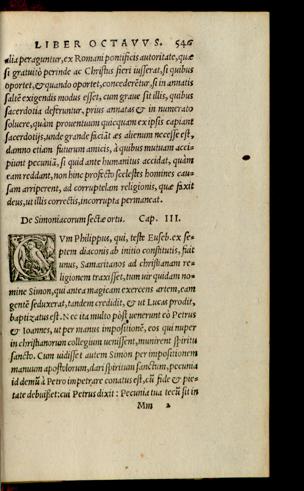 LIBER OCTAVVS. 546
alia peraguntur, ex Romani pontificis autoritate, quæ
si gratuitò perinde ac Christus fieri iusserat, si quibus
oportet, & quando oportet, concederētur, si in annatis
saltē exigendis modus esset, cum graue sit illis, quibus
sacerdotia deferuntur, prius annatas & in numerato
soluere, quàm prouentuum quicquam ex ipsis capiant
sacerdotijs, unde grande faciāt æs alienum necesse est,
damno etiam futurum amicis, à quibus mutuam acci
piunt pecuniā, si quid ante humanitus accidat, quàm
eam reddant, non hinc profecto scelestos homines cau-
sam arriperent, ad corruptelam religionis, quæ faxit
deus, ut illis correctis, incorrupta permaneat.
De Simoniacorum sectæ ortu. Cap. III.
CVm Philippus, qui, teste Euseb. ex se-
ptem diaconis ab initio constitutis, fuit
unus, Samaritanos ad christianam re-
ligionem traxisset, tum uir quidam no-
mine Simon, qui antea magicam exercens artem, eam
gentē seduxerat, tandem credidit, & ut Lucas prodit,
baptizatus est. Nec ita multo pòst uenerunt eò Petrus
& Ioannes, ut per manus impositionē, eos qui nuper
in christianorum collegium uenissent, munirent spiritu
sancto. Cum uidisset autem Simon per impositionem
manuum apostolorum, dari spiritum sanctum, pecunia
id demū à Petro impetrare conatus est, cū fide & pie-
tate debuisset: cui Petrus dixit: Pecunia tua tecū sit in
Mm 2